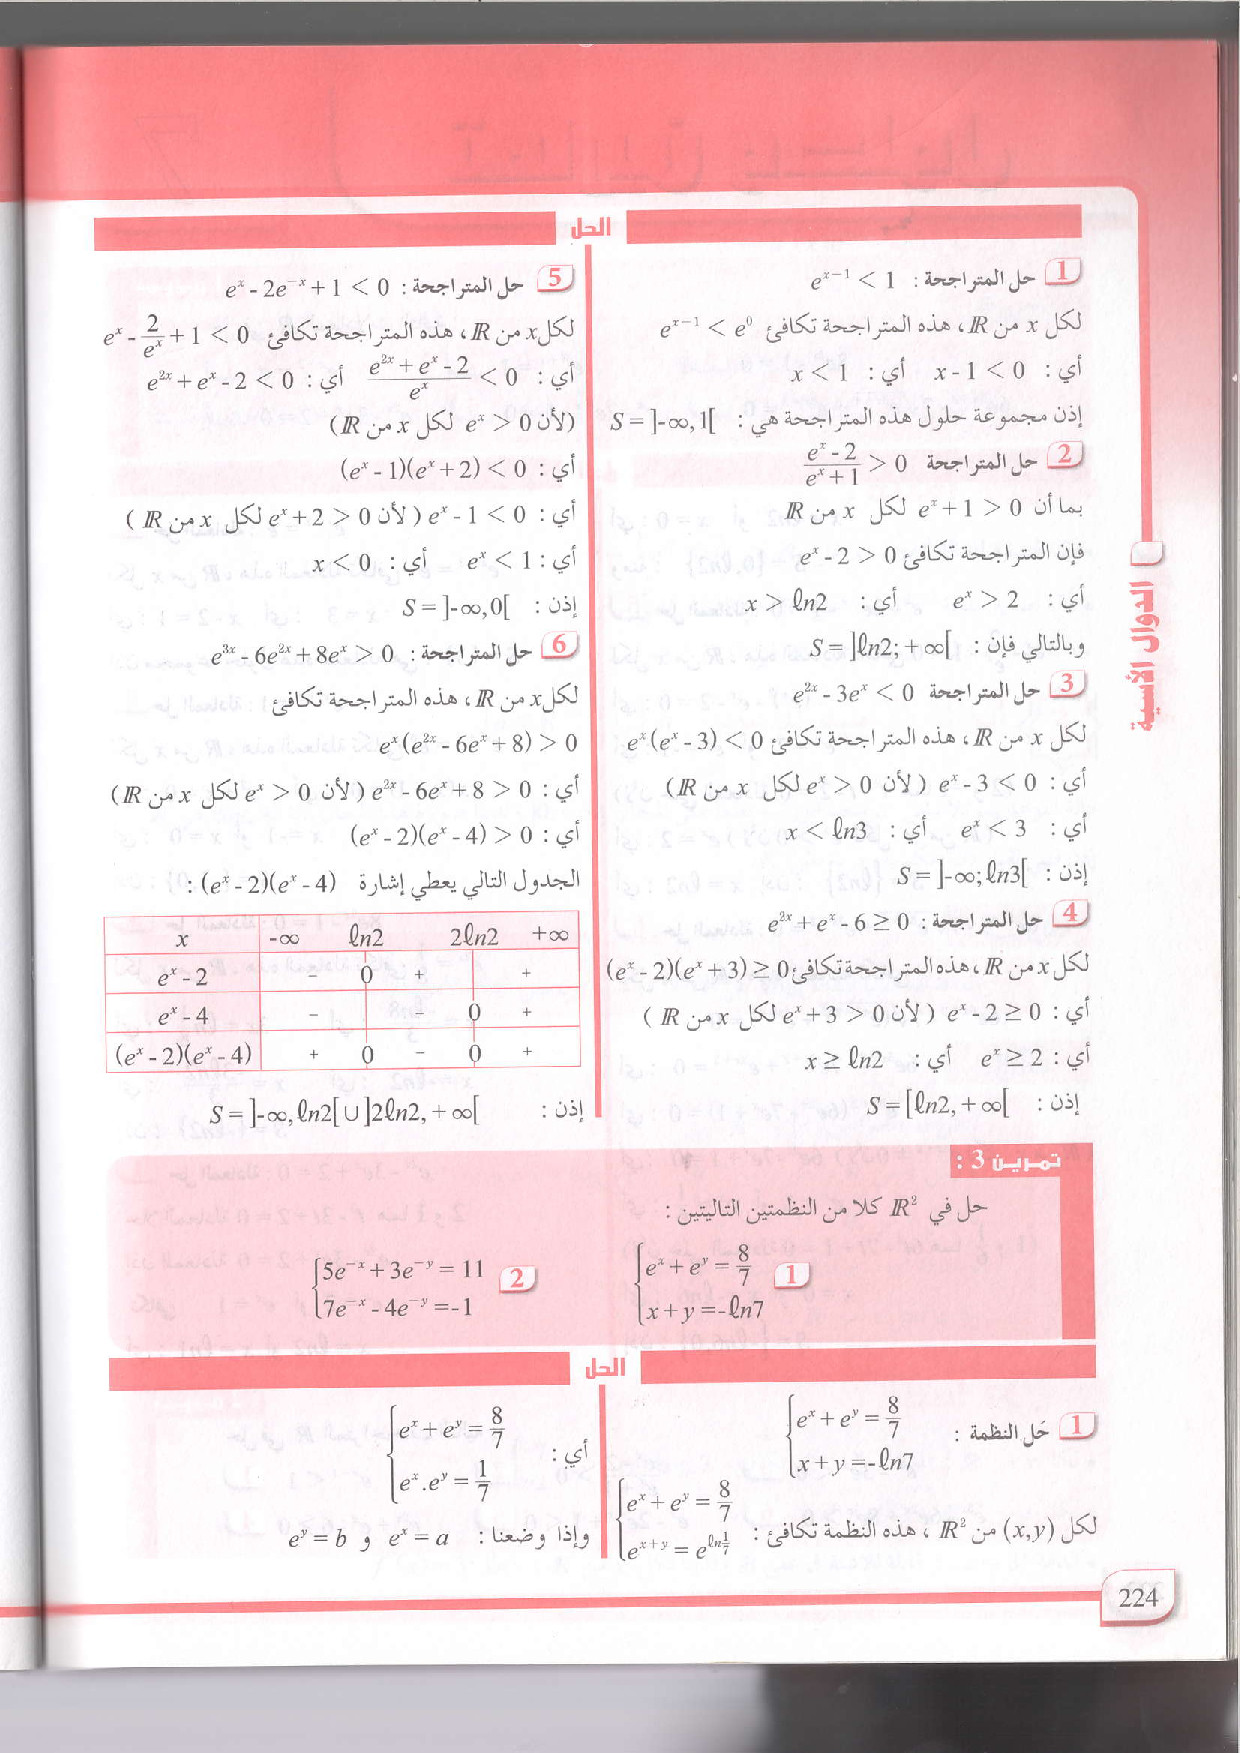 الحل
1 حل المتراجحة : e^{x-1} < 1
لكل x من IR، هذه المتراجحة تكافئ e^{x-1} < e^0
أي : x - 1 < 0 أي : x < 1
إذن مجموعة حلول هذه المتراجحة هي : S = ]-∞, 1[
2 حل المتراجحة \frac{e^x - 2}{e^x + 1} > 0
بما أن e^x + 1 > 0 لكل x من IR
فإن المتراجحة تكافئ e^x - 2 > 0
أي : e^x > 2 أي : x > ℓn2
وبالتالي فإن : S = ]ℓn2; +∞[
3 حل المتراجحة e^{2x} - 3e^x < 0
لكل x من IR، هذه المتراجحة تكافئ e^x(e^x - 3) < 0
أي : e^x - 3 < 0 (لأن e^x > 0 لكل x من IR)
أي : e^x < 3 أي : x < ℓn3
إذن : S = ]-∞; ℓn3[
4 حل المتراجحة : e^{2x} + e^x - 6 ≥ 0
لكل x من IR، هذه المتراجحة تكافئ (e^x - 2)(e^x + 3) ≥ 0
أي : e^x - 2 ≥ 0 (لأن e^x + 3 > 0 لكل x من IR)
أي : e^x ≥ 2 أي : x ≥ ℓn2
إذن : S = [ℓn2, +∞[
5 حل المتراجحة : e^x - 2e^{-x} + 1 < 0
لكل x من IR، هذه المتراجحة تكافئ e^x - \frac{2}{e^x} + 1 < 0
أي : \frac{e^{2x} + e^x - 2}{e^x} < 0 أي : e^{2x} + e^x - 2 < 0
(لأن e^x > 0 لكل x من IR)
أي : (e^x - 1)(e^x + 2) < 0
أي : e^x - 1 < 0 (لأن e^x + 2 > 0 لكل x من IR)
أي : e^x < 1 أي : x < 0
إذن : S = ]-∞, 0[
6 حل المتراجحة : e^{3x} - 6e^{2x} + 8e^x > 0
لكل x من IR، هذه المتراجحة تكافئ
e^x(e^{2x} - 6e^x + 8) > 0
أي : e^{2x} - 6e^x + 8 > 0 (لأن e^x > 0 لكل x من IR)
أي : (e^x - 2)(e^x - 4) > 0
الجدول التالي يعطي إشارة (e^x - 2)(e^x - 4) :
x -∞ ℓn2 2ℓn2 +∞
e^x - 2 - 0 + +
e^x - 4 - - 0 +
(e^x - 2)(e^x - 4) + 0 - 0 +
إذن : S = ]-∞, ℓn2[ ∪ ]2ℓn2, +∞[
الدوال الأسية
تمرين 3 :
حل في IR² كلا من النظمتين التاليتين :
1 { e^x + e^y = \frac{8}{7}
x + y = -ℓn7
2 { 5e^{-x} + 3e^{-y} = 11
7e^{-x} - 4e^{-y} = -1
الحل
1 حَل النظمة : { e^x + e^y = \frac{8}{7}
x + y = -ℓn7
لكل (x, y) من IR²، هذه النظمة تكافئ : { e^x + e^y = \frac{8}{7}
e^{x+y} = e^{ℓn\frac{1}{7}}
أي : { e^x + e^y = \frac{8}{7}
e^x . e^y = \frac{1}{7}
وإذا وضعنا : e^x = a و e^y = b
224